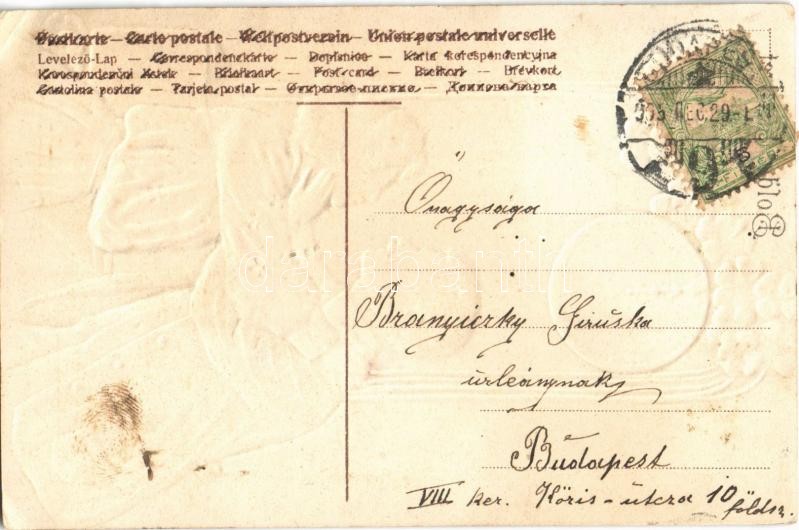 Postkarte – Carte postale – Weltpostverein – Union postale universelle
Levelező-Lap – Correspondenzkarte – Dopisnice – Karta korespondencyjna
Korespondenční lístek – Briefkaart – Post-card – Brefkort – Brevkort
Cartolina postale – Tarjeta postal – Открытое письмо – Дописна карта
Önagysága
Branyiczky Giruska
úrleánynak
Budapest
VIII ker. Köris-utcza 10
földsz.
DEC. 29
Bold
darabanth